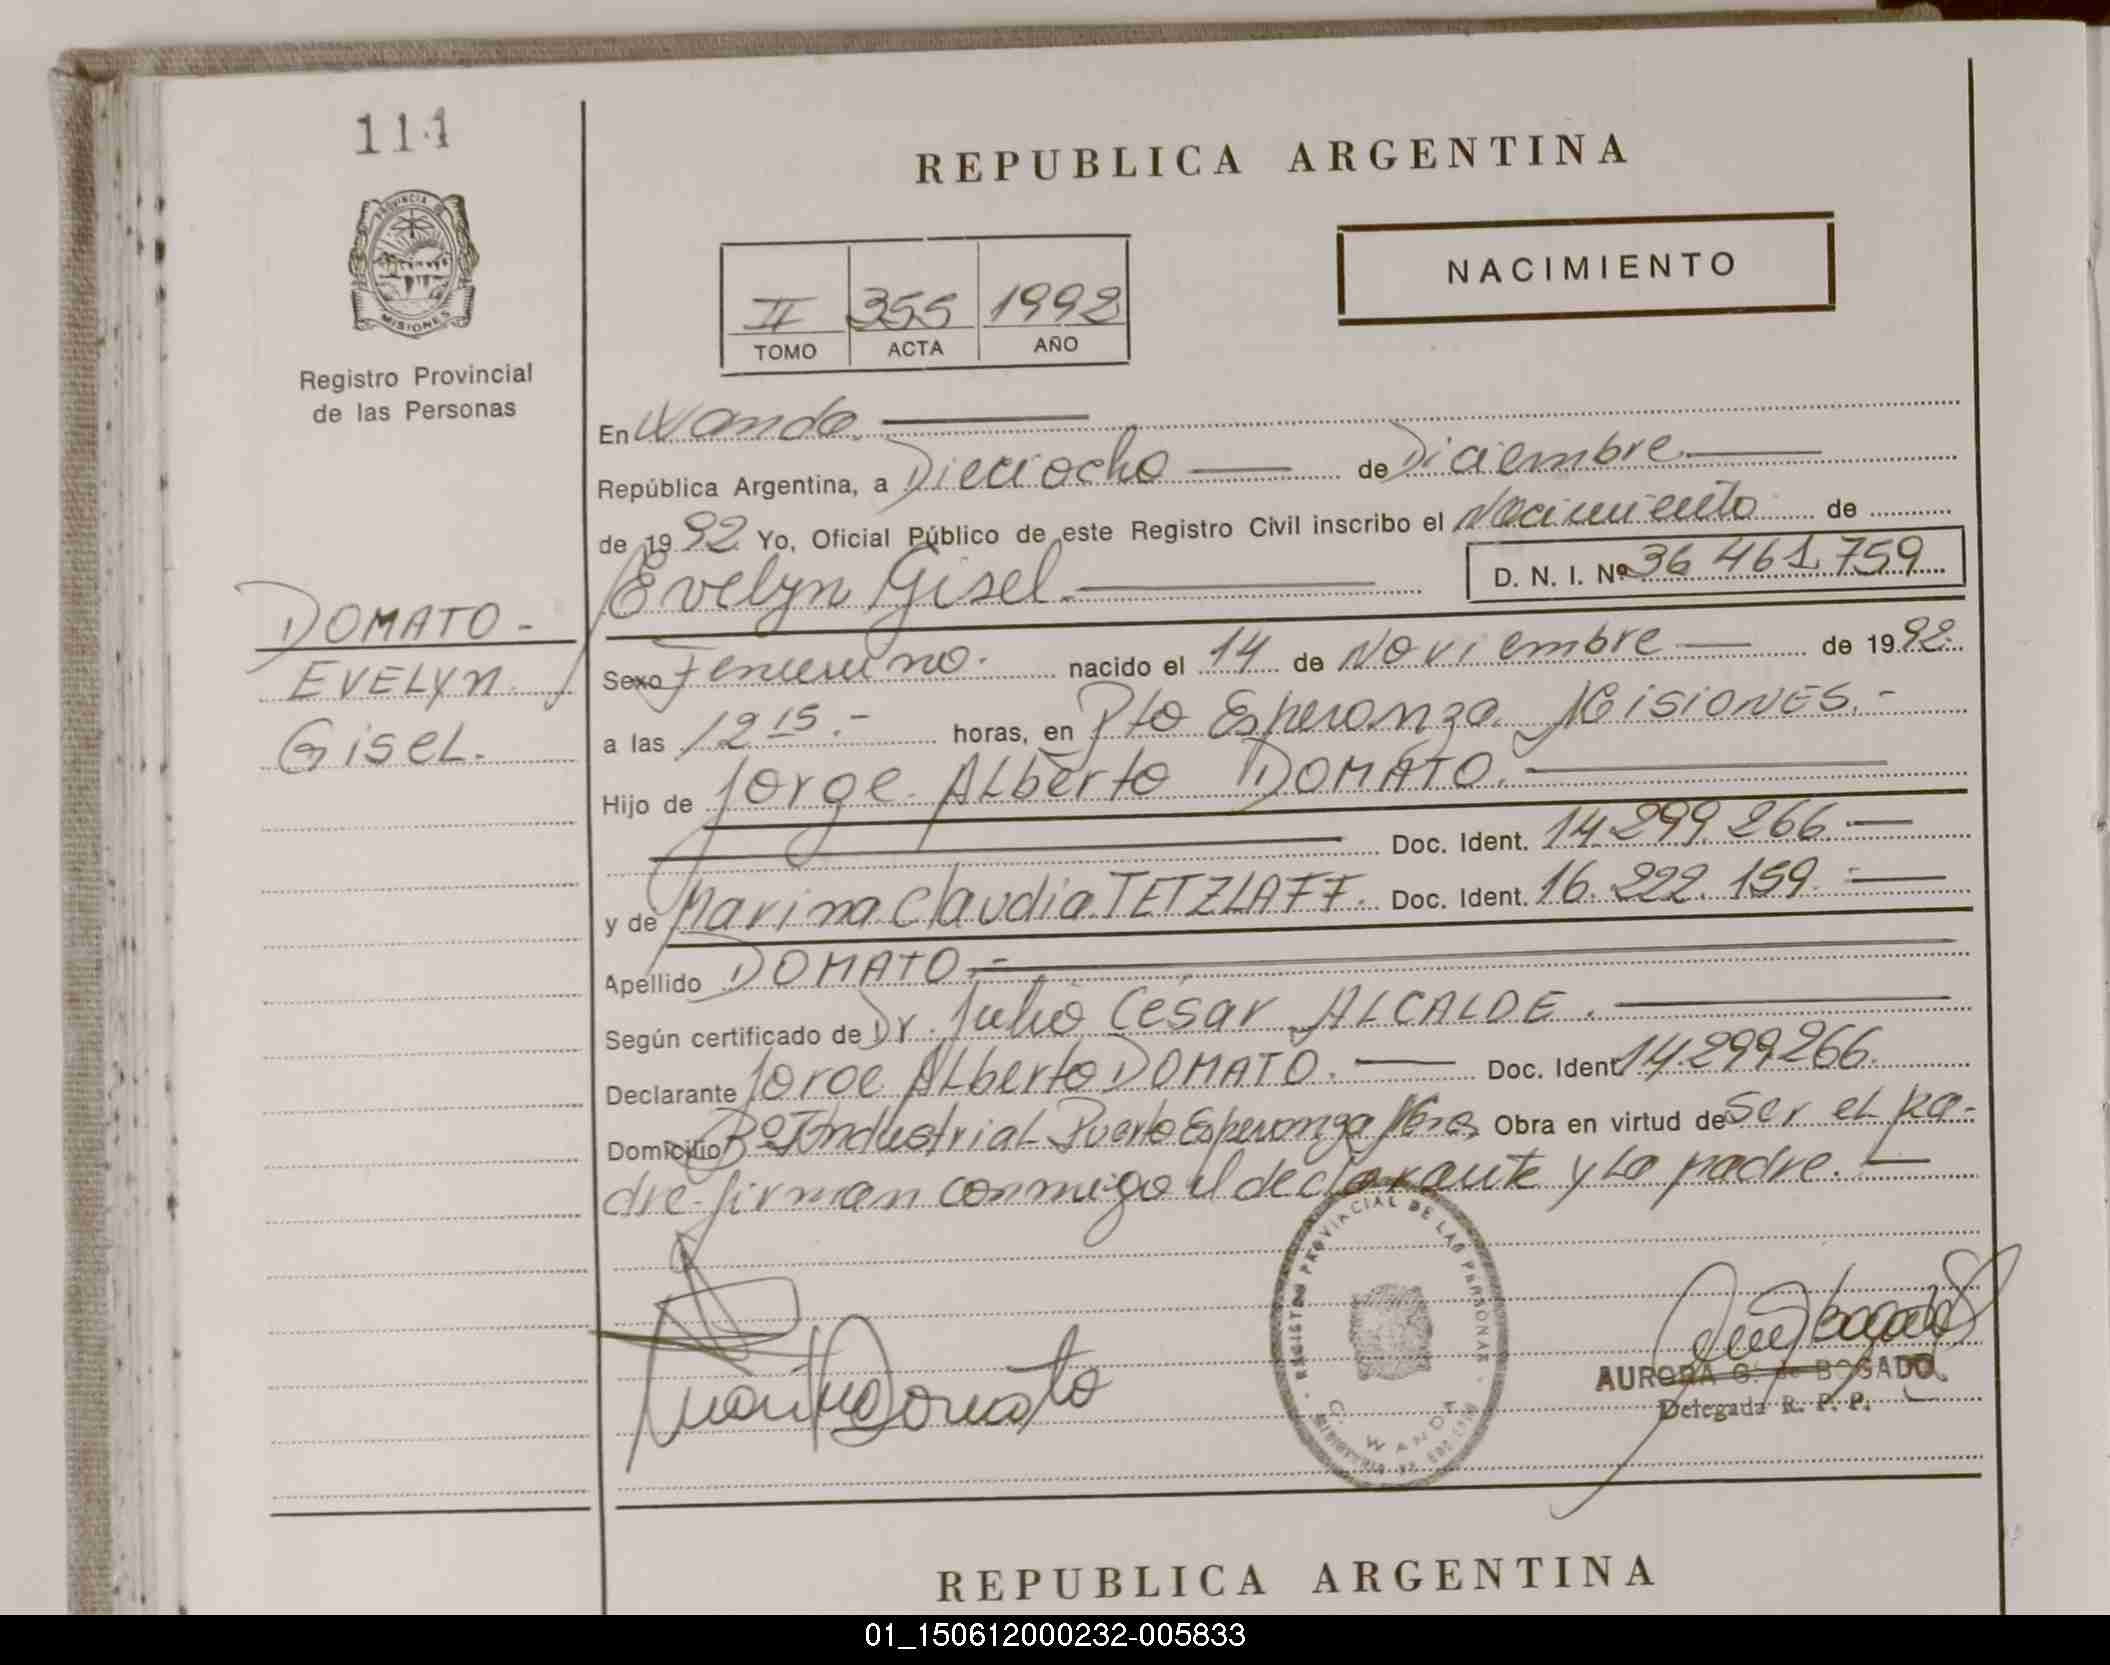 111
PROVINCIA DE
MISIONES
Registro Provincial
de las Personas
DOMATO -
EVELYN
GISEL.
REPUBLICA ARGENTINA
NACIMIENTO
II 355 1992
TOMO ACTA AÑO
En Wanda.
República Argentina, a Dieciocho de Diciembre
de 1992 Yo, Oficial Público de este Registro Civil inscribo el Nacimiento de
Evelyn Gisel D. N. I. Nº 36 461.759
Sexo Femenino. nacido el 14 de Noviembre de 1992.
a las 12 15.- horas, en Pto Esperanza. MISIONES.-
Hijo de Jorge Alberto DOMATO.
Doc. Ident. 14.299.266
y de Marina Claudia TETZLAFF. Doc. Ident. 16.222.159.
Apellido DOMATO.-
Según certificado de Dr. Julio César ALCALDE.
Declarante Jorge Alberto DOMATO. Doc. Ident. 14.299.266.
Domicilio Bº Industrial Puerto Esperanza Mnes. Obra en virtud de Ser el pa-
dre-firman conmigo el declarante y la madre.
REGISTRO PROVINCIAL DE LAS PERSONAS
WANDA
AURORA G. de BOGADO
Delegada R. P. P.
REPUBLICA ARGENTINA
01_150612000232-005833